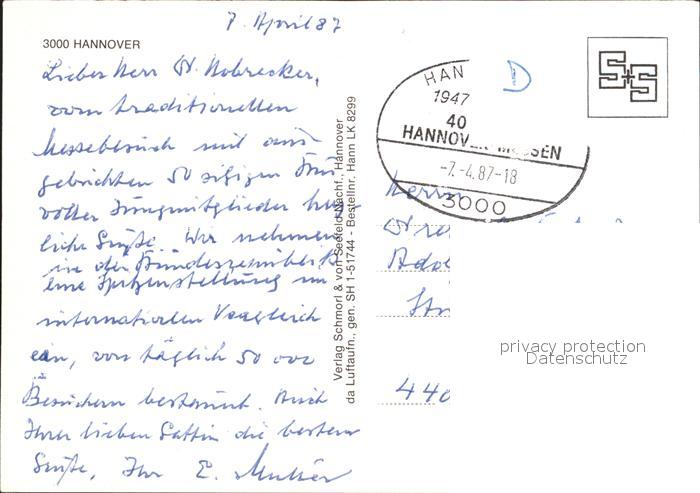 7. April 87
3000 HANNOVER
Lieber Herr Dr. Nobrecker,
vom traditionellen
Messebesuch mit
50
voller Jungmitglieder herz
liche Grüße. Wir nehmen
in der
eine Spitzenstellung im
internationalen Vergleich
ein, von täglich 50 000
Besuchern bestaunt. Auch
Ihrer lieben Gattin die besten
Grüße, Ihr E. Müller
Verlag Schmorl & von Seefeld Nachf., Hannover
da Luftaufn., gen. SH 1-51744 - Bestellnr. Hann LK 8299
HAN
1947
40
HANNOV MESSEN
-7.-4.87-18
3000
D
S+S
Herrn
Adol
440
privacy protection
Datenschutz